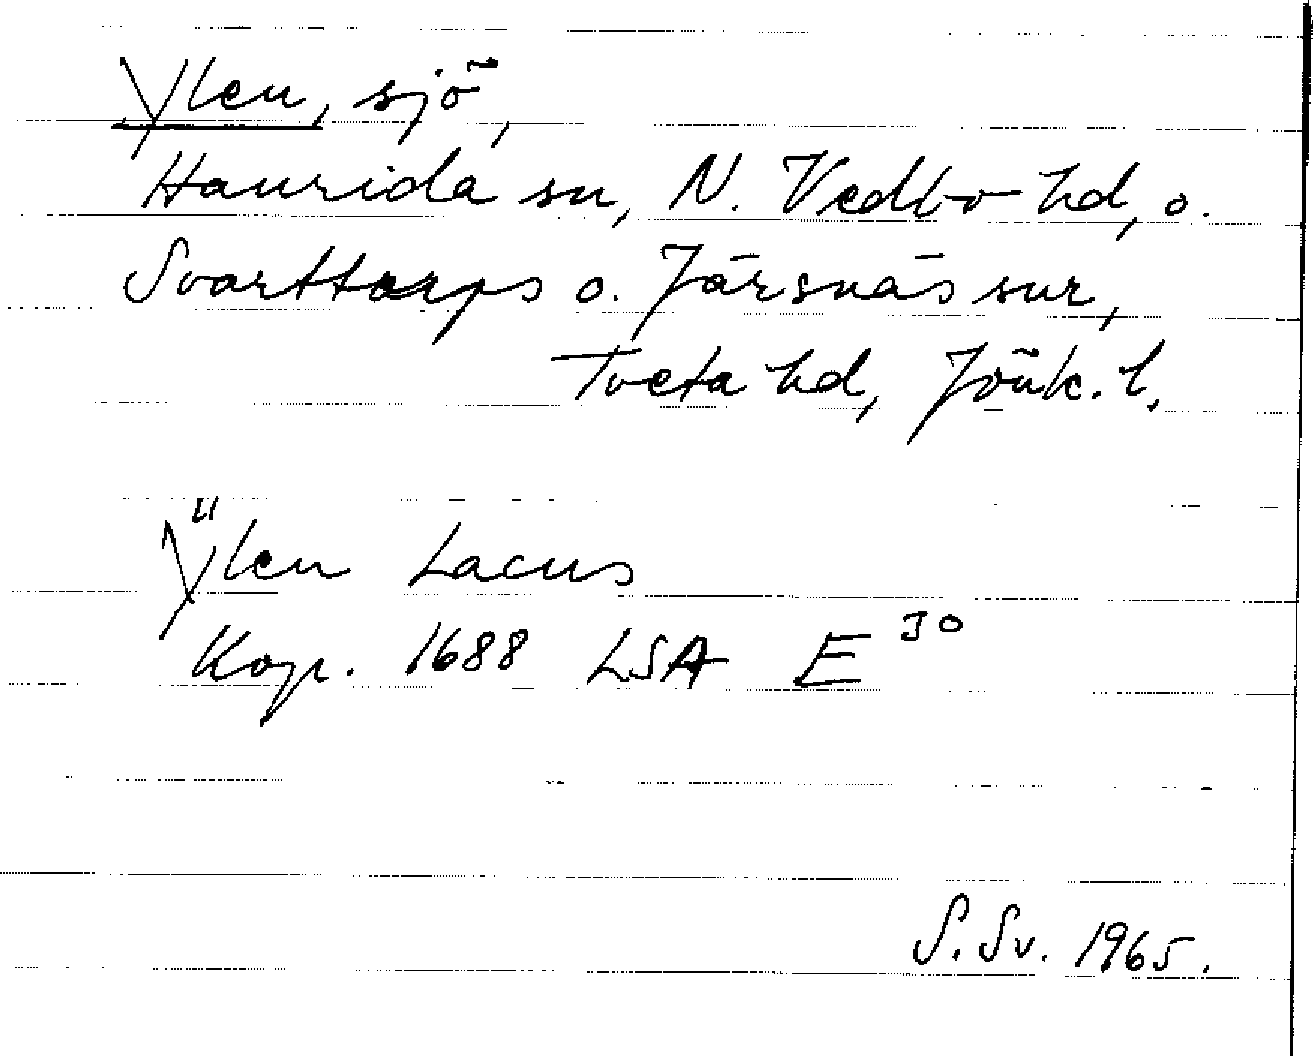 Ylen, sjö,
Haurida sn, N. Vedbo hd, o.
Svarttorps o. Järsnäs snr,
Tveta hd, Jönk. l.
Ÿlen Lacus
Kop. 1688 LSA E 30
S. Sv. 1965.